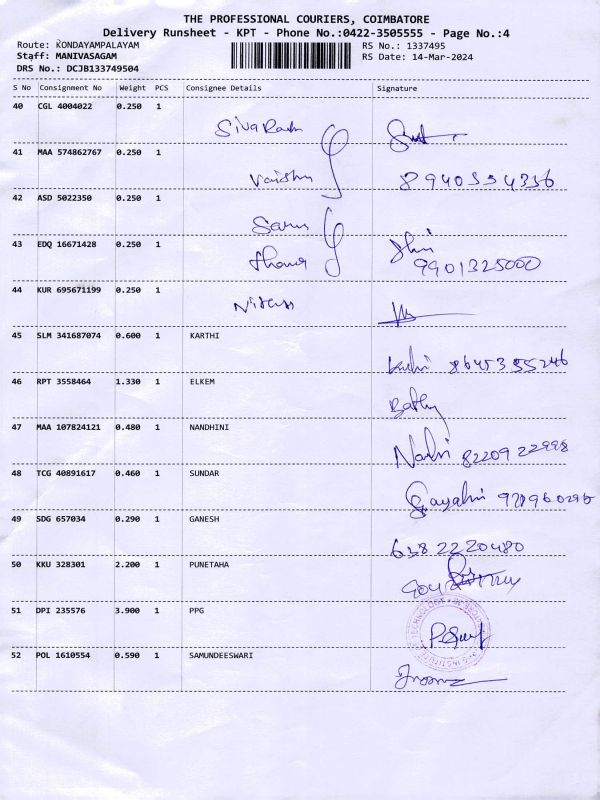 THE PROFESSIONAL COURIERS, COIMBATORE
Delivery Runsheet - KPT - Phone No.:0422-3505555 - Page No.:4
Route: KONDAYAMPALAYAM
RS No.: 1337495
Staff: MANIVASAGAM
RS Date: 14-Mar-2024
DRS No.: DCJB133749504
S No Consignment No Weight PCS Consignee Details Signature
40 CGL 4004022 0.250 1
Sivaram
41 MAA 574862767 0.250 1
Vaishu 8940554356
42 ASD 5022350 0.250 1
Sarus
43 EDQ 16671428 0.250 1
9901325000
44 KUR 695671199 0.250 1
45 SLM 341687074 0.600 1 KARTHI
8645355246
46 RPT 3558464 1.330 1 ELKEM
Bathy
47 MAA 107824121 0.480 1 NANDHINI
8220922998
48 TCG 40891617 0.460 1 SUNDAR
Gayathri
49 SDG 657034 0.290 1 GANESH
6382220480
50 KKU 328301 2.200 1 PUNETAHA
51 DPI 235576 3.900 1 PPG
52 POL 1610554 0.590 1 SAMUNDEESWARI